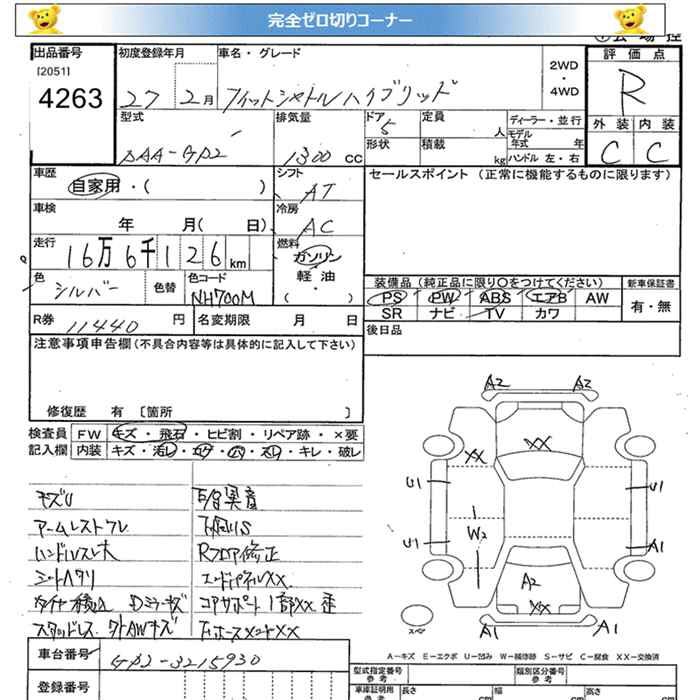 完全ゼロ切りコーナー
出品番号 初度登録年月 車名・グレード 評価点
[2051] 2WD・4WD R
4263 27 2月 フィットシャトルハイブリッド
型式 排気量 ドア 5 定員 人 ディーラー・並行 外装 内装
モデル年式 年
DAA-GP2 1300 CC 形状 積載 kg ハンドル 左・右 C C
車歴 自家用・( ) シフト AT セールスポイント (正常に機能するものに限ります)
車検 年 月( 日) 冷房 AC
走行 16万6千126km 燃料 ガソリン
軽・油
・( )
色 シルバー 色替 色コード NH700M 装備品(純正品に限り○をつけてください) 新車保証書
PS PW ABS エアB AW 有・無
SR ナビ TV カワ
R券 11440円 名変期限 月 日 後日品
注意事項申告欄(不具合内容等は具体的に記入して下さい)
修復歴 有 [箇所 ]
検査員 FW キズ・飛石・ヒビ割・リペア跡・×要
記入欄 内装 キズ・汚レ・コゲ・穴・スレ・キレ・破レ
A2 A2
XX XX
U1 U1
W2
U1 A1
A2
XX
A1 A1
スペア
キズU
アームレストスレ
ハンドルスレ大
シートヘタリ
タイヤ積込 Dミラーキズ
スタッドレス 外AWキズ
下廻りS
Rフロア修正
エンドパネルXX
コアサポート1部XX 歪
A－キズ E－エクボ U－凹み W－補修跡 S－サビ C－腐食 XX－交換済
車台番号 GP2-3215930
登録番号
型式指定番号 参考 類別区分番号 参考
車庫証明用 参考 長さ cm 幅 cm 高さ cm